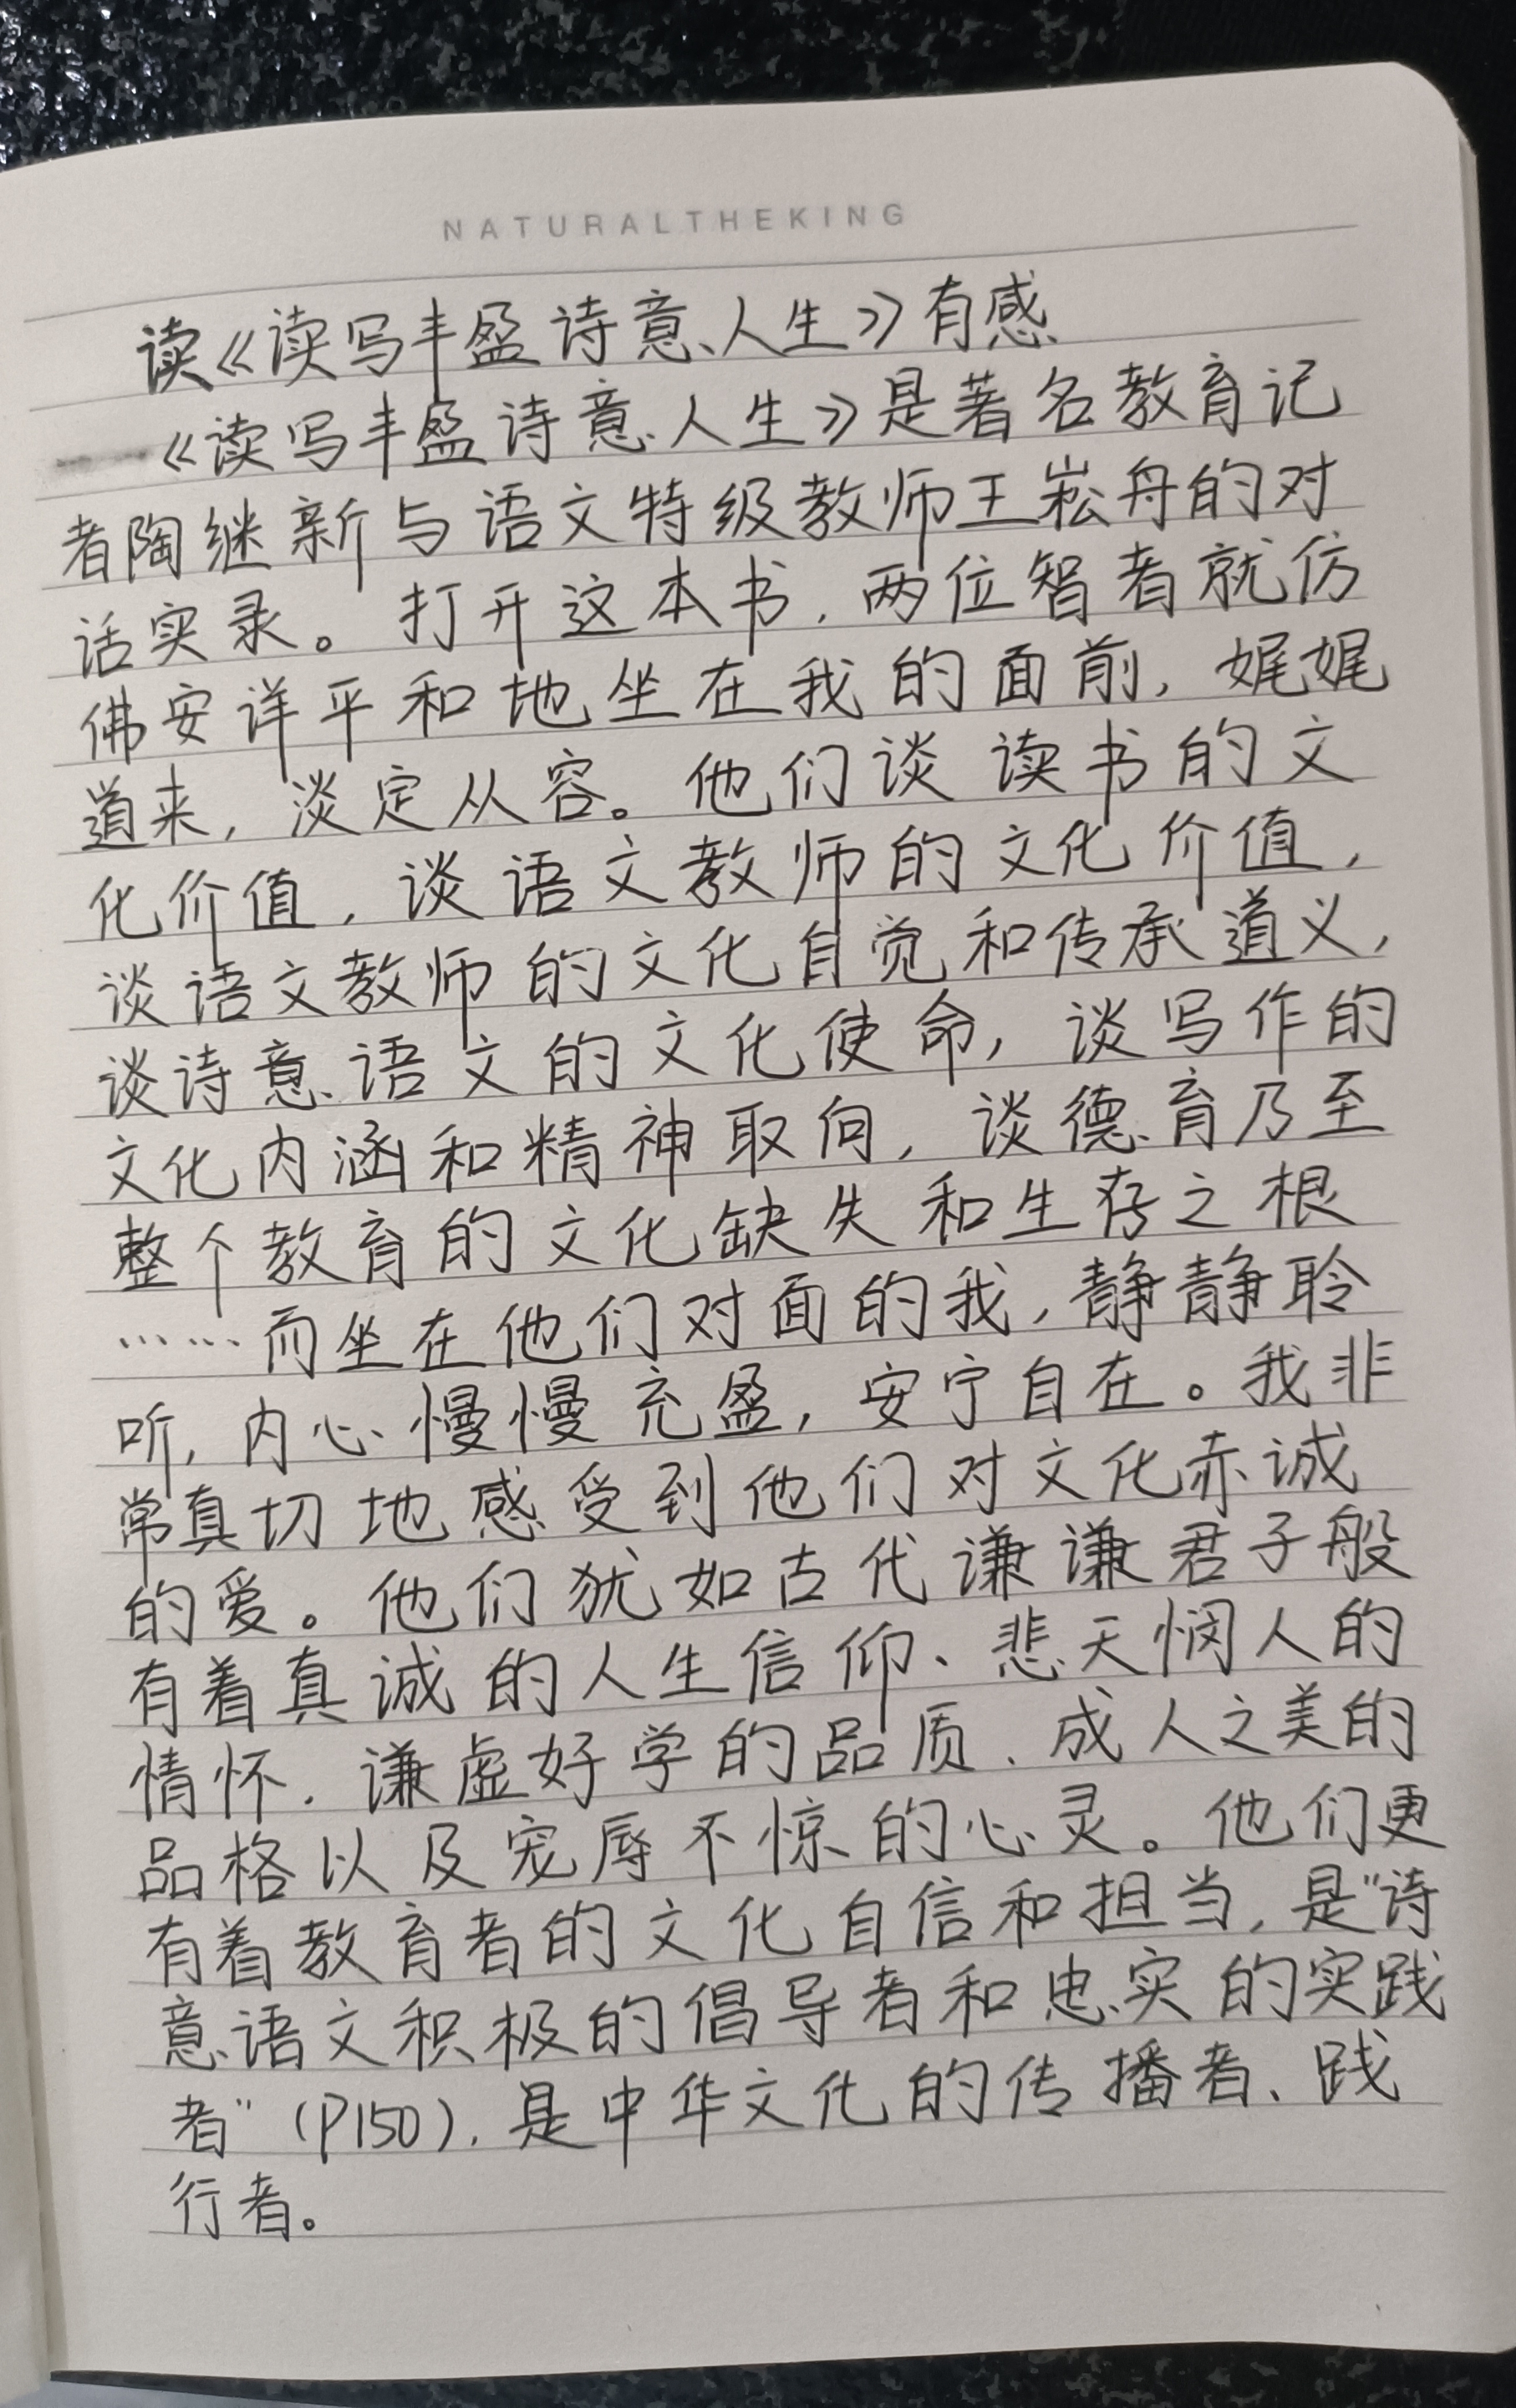 NATURALTHEKING
读《读写丰盈诗意人生》有感
《读写丰盈诗意人生》是著名教育记
者陶继新与语文特级教师王崧舟的对
话实录。打开这本书，两位智者就仿
佛安详平和地坐在我的面前，娓娓
道来，淡定从容。他们谈读书的文
化价值，谈语文教师的文化价值，
谈语文教师的文化自觉和传承道义，
谈诗意语文的文化使命，谈写作的
文化内涵和精神取向，谈德育乃至
整个教育的文化缺失和生存之根
……而坐在他们对面的我，静静聆
听，内心慢慢充盈，安宁自在。我非
常真切地感受到他们对文化赤诚
的爱。他们犹如古代谦谦君子般
有着真诚的人生信仰、悲天悯人的
情怀、谦虚好学的品质、成人之美的
品格以及宠辱不惊的心灵。他们更
有着教育者的文化自信和担当，是“诗
意语文积极的倡导者和忠实的实践
者”（P150），是中华文化的传播者、践
行者。